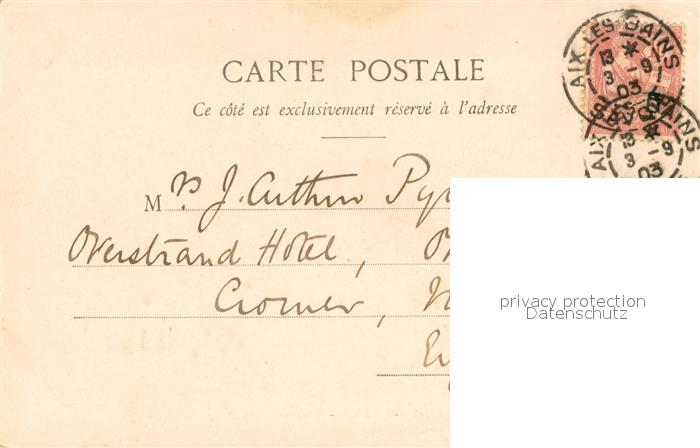 CARTE POSTALE
Ce côté est exclusivement réservé à l'adresse
AIX-LES-BAINS
13
3 - 9
03
AIX-LES-BAINS
13
3 - 9
03
Mrs J. Arthur
Overstrand Hotel,
Cromer,
privacy protection
Datenschutz